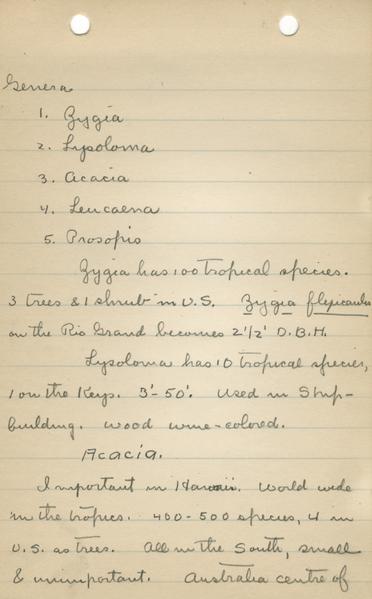 Genera
1. Zygia
2. Lysoloma
3. Acacia
4. Leucaena
5. Prosopis
Zygia has 100 tropical species.
3 trees & 1 shrub in U.S. Zygia flexicaulis
on the Rio Grand becomes 2 1/2' D.B.H.
Lysoloma has 10 tropical species,
1 on the Keys. 3'-50'. Used in Ship-
building. Wood wine-colored.
Acacia.
Important in Hawaii. World wide
in the tropics. 400-500 species, 4 in
U.S. as trees. All in the South, small
& unimportant. Australia centre of